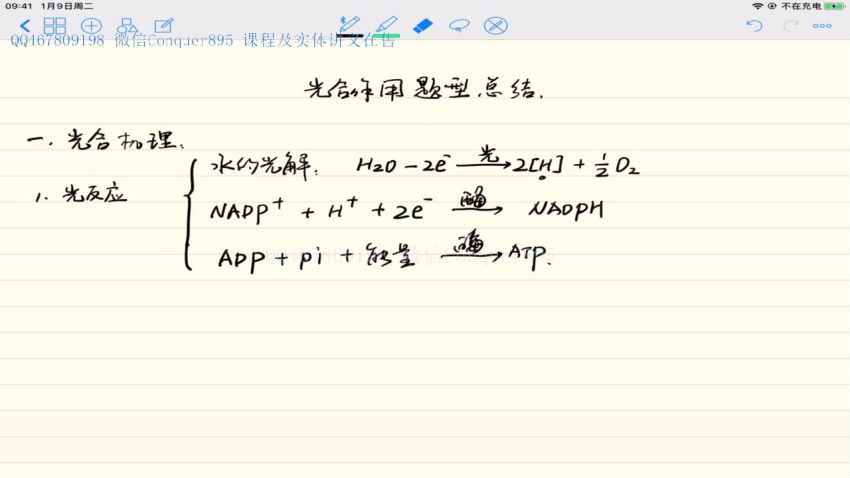 09:41 1月9日周二 不在充电
QQ467809198 微信Conquer895 课程及实体讲义在售
光合作用题型总结.
一. 光合机理:
水的光解: H2O - 2e⁻ —光→ 2[H] + ½ O₂
1. 光反应
NADP⁺ + H⁺ + 2e⁻ —酶→ NADPH
ADP + pi + 能量 —酶→ ATP.